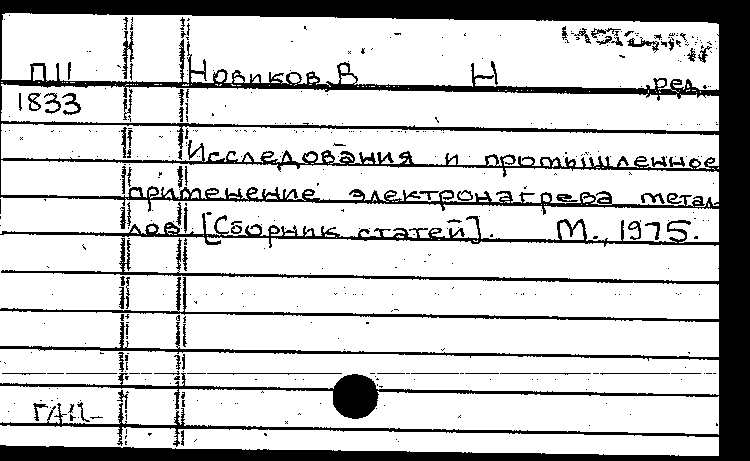 П11 Новиков, В Н ,ред.
1833
Исследования и промышленное
применение электронагрева метал-
лов. [Сборник статей]. М., 1975.